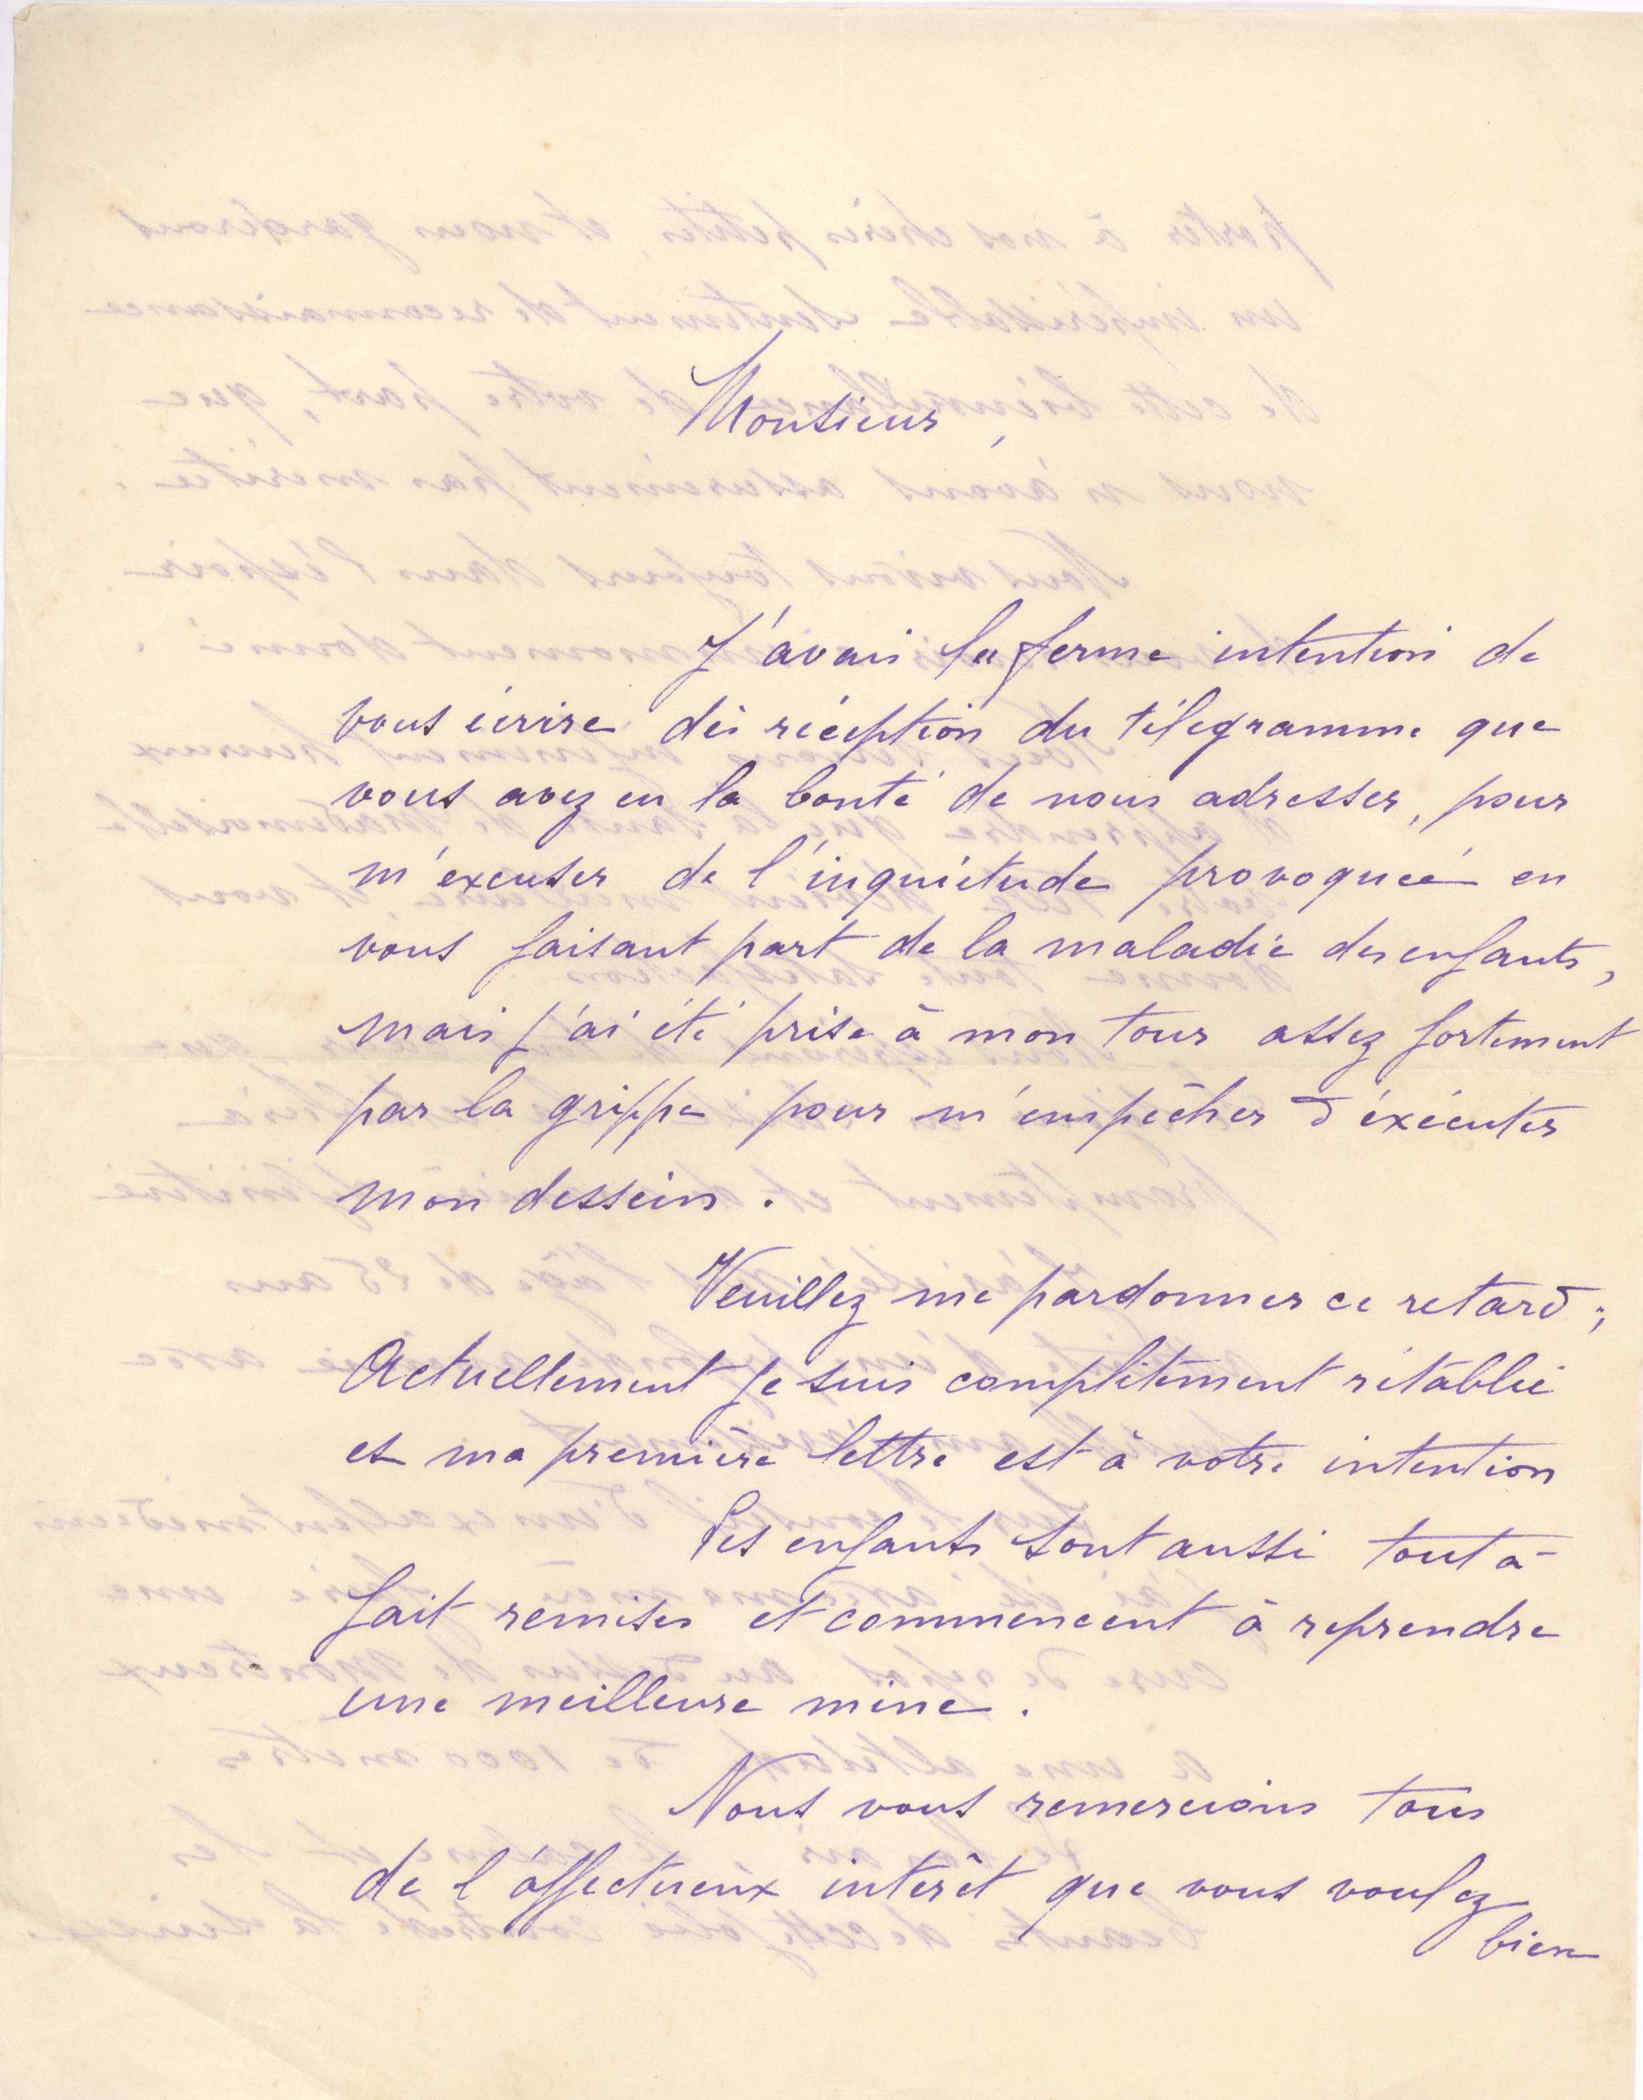 Monsieur,
J'avais la ferme intention de
vous écrire dès réception du télégramme que
vous avez eu la bonté de nous adresser, pour
m'excuser de l'inquiétude provoquée en
vous faisant part de la maladie des enfants,
mais j'ai été prise à mon tour assez fortement
par la grippe pour m'empêcher d'éxécuter
mon dessein.
Veuillez me pardonner ce retard;
Actuellement je suis complètement rétablie
et ma première lettre est à votre intention
Les enfants sont aussi tout à
fait remises et commencent à reprendre
une meilleure mine.
Nous vous remercions tous
de l'affectueux intérêt que vous voulez
bien